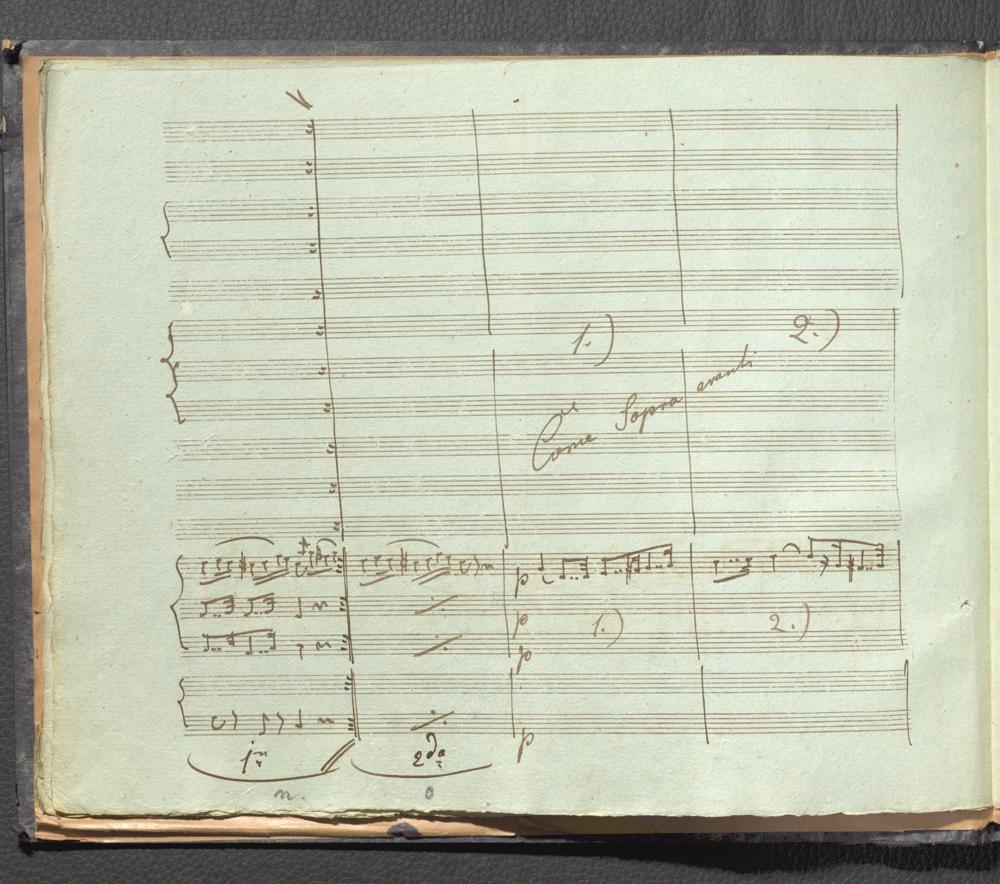 1.) 2.)
Come Sopra avanti
p
p 1.) 2.)
p
p
1ma 2da
n. o